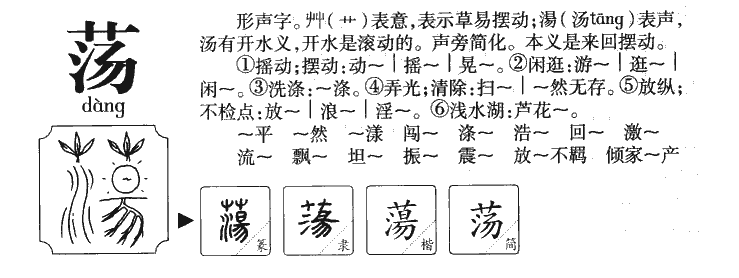 荡
dàng
形声字。艸(艹)表意,表示草易摆动;湯(汤tāng)表声,
汤有开水义,开水是滚动的。声旁简化。本义是来回摆动。
①摇动;摆动:动~|摇~|晃~。②闲逛:游~|逛~|
闲~。③洗涤:~涤。④弄光;清除:扫~|~然无存。⑤放纵;
不检点:放~|浪~|淫~。⑥浅水湖:芦花~。
~平 ~然 ~漾 闯~ 涤~ 浩~ 回~ 激~
流~ 飘~ 坦~ 振~ 震~ 放~不羁 倾家~产
蕩 篆
蕩 隶
蕩 楷
荡 简